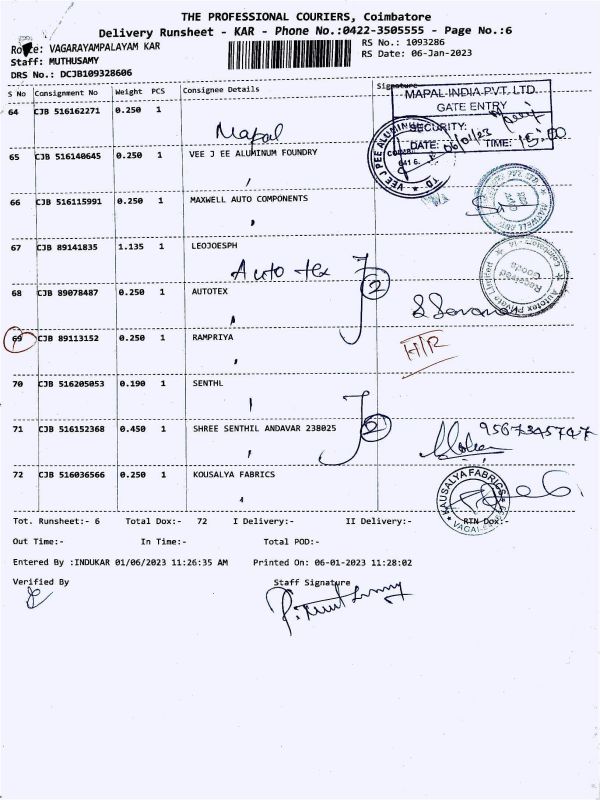 THE PROFESSIONAL COURIERS, Coimbatore
Delivery Runsheet - KAR - Phone No.:0422-3505555 - Page No.:6
Route: VAGARAYAMPALAYAM KAR
RS No.: 1093286
Staff: MUTHUSAMY
RS Date: 06-Jan-2023
DRS No.: DCJB109328606
S No Consignment No Weight PCS Consignee Details Signature
MAPAL INDIA PVT. LTD.
GATE ENTRY
SECURITY:
DATE: 06/01/23 TIME: 15:00
64 CJB 516162271 0.250 1
Mapal
65 CJB 516140645 0.250 1 VEE J EE ALUMINUM FOUNDRY
VEE J PEE ALUMINIUM
66 CJB 516115991 0.250 1 MAXWELL AUTO COMPONENTS
67 CJB 89141835 1.135 1 LEOJOESPH
Auto tex
2
Autotex Private Limited
Received
Goods
Coimbatore - 14
68 CJB 89078487 0.250 1 AUTOTEX
69 CJB 89113152 0.250 1 RAMPRIYA
H/R
70 CJB 516205053 0.190 1 SENTHL
71 CJB 516152368 0.450 1 SHREE SENTHIL ANDAVAR 238025
9567345747
72 CJB 516036566 0.250 1 KOUSALYA FABRICS
KAUSALYA FABRICS
Tot. Runsheet:- 6 Total Dox:- 72 I Delivery:- II Delivery:- RTN Dox:-
Out Time:- In Time:- Total POD:-
Entered By :INDUKAR 01/06/2023 11:26:35 AM Printed On: 06-01-2023 11:28:02
Verified By Staff Signature